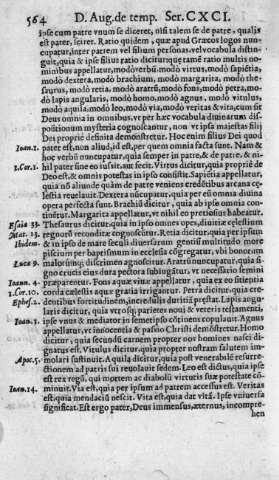 564 D. Aug. de temp. Ser. CXCI.
ipse cum patre vnum se diceret, nisi talem se de patre, qualis
est pater, sciret. Ratio quidem, quæ apud Græcos logos nun-
cupatur, inter patrem vel filium personas, vel vocabula distin-
guit, quia & ipse filius ratio dicitur: quæ tamē ratio multis no-
minibus appellatur, modò verbū modò virtus, modò sapiētia,
modò dextera, modò brachium, modò margarita, modò the-
saurus, modò retia, modò aratrū, modò fons, modò petra, mo-
dò lapis angularis, modò homo, modò agnus, modò vitulus
modò aquila, modò leo, modò via, modò veritas & vita, cum sit
Deus omnia in omnibus, vt per hæc vocabula diuinarum dis-
positionum mysteria cognoscantur, non vt ipsa maiestas filij
Dei propriè definita demonstretur. Hoc enim filius Dei quod
Ioann. 1. pater est, non aliud, id est, per quem omnia facta sunt. Nam &
hoc verbū nuncupatur, quia semper in patre, & de patre, & ni-
1. Cor. 1. hil pater sine eo iussit, aut fecit. Virtus dicitur, quia propriè de
Deo est, & omnis potestas in ipso consistit. Sapiētia appellatur,
quia nō aliunde quàm de patre veniens credentibus arcana cæ-
lestia reuelauit. Dextera nūcupatur, quia per eū omnia diuina
opera perfecta sunt. Brachiū dicitur, quia ab ipso omnia con-
tinetur. Margarita appellatur, vt nihil eo pretiosius habeatur.
Esaiæ 33. Thesaurus dicitur, quia in ipso omnes opes, diuitiæ cælestium
Mat. 13. regnorū reconditæ cognoscūtur. Retia dicitur, quia per ipsum
Ibidem. & in ipso de mare seculi diuersarum gentiū multitudo more
piscium per baptismum in ecclesia cōgregatur, vbi bonorum
Luca 9. malorūmq; discrimen agnoscitur. Aratrū nuncupatur, quia si-
gno crucis eius dura pectora subiugātur, vt necessario semini
Ioann. 4. præparentur. Fons aquæ viuæ appellatur, quia ex eo sitientia
1. Cor. 10. corda cælestis aquæ gratia irrigantur. Petra dicitur, quia cre-
Ephes. 2. dentibus fortitudinem, incredulis duritiā præstat. Lapis angu-
laris dicitur, quia vtrosq; parietes noui & veteris testamenti,
Ioan. 1. ipse vnus & mediator in semetipso cōtinens copulauit. Agnus
appellatur, vt innocentia & passio Christi demōstretur. Homo
dicitur, quia secundū carnem propter nos homines nasci di-
gnatus est. Vitulus dicitur, quia propter nostram salutem im-
Apoc. 5. molari sustinuit. Aquila dicitur, quia post venerabilē resurre-
ctionem ad patris sui reuolauit sedem. Leo est dictus, quia ipse
est rex regū, qui mortem ac diabolū virtutis suæ potestate cō-
Ioan. 14. minuit. Via est, quia per ipsum ad patrem accessus est. Veritas
est, quia mendaciū nescit. Vita est, quia dat vitā. Ipse vniuersa
significat. Est ergo pater, Deus immensus, æternus, incompre-
hen